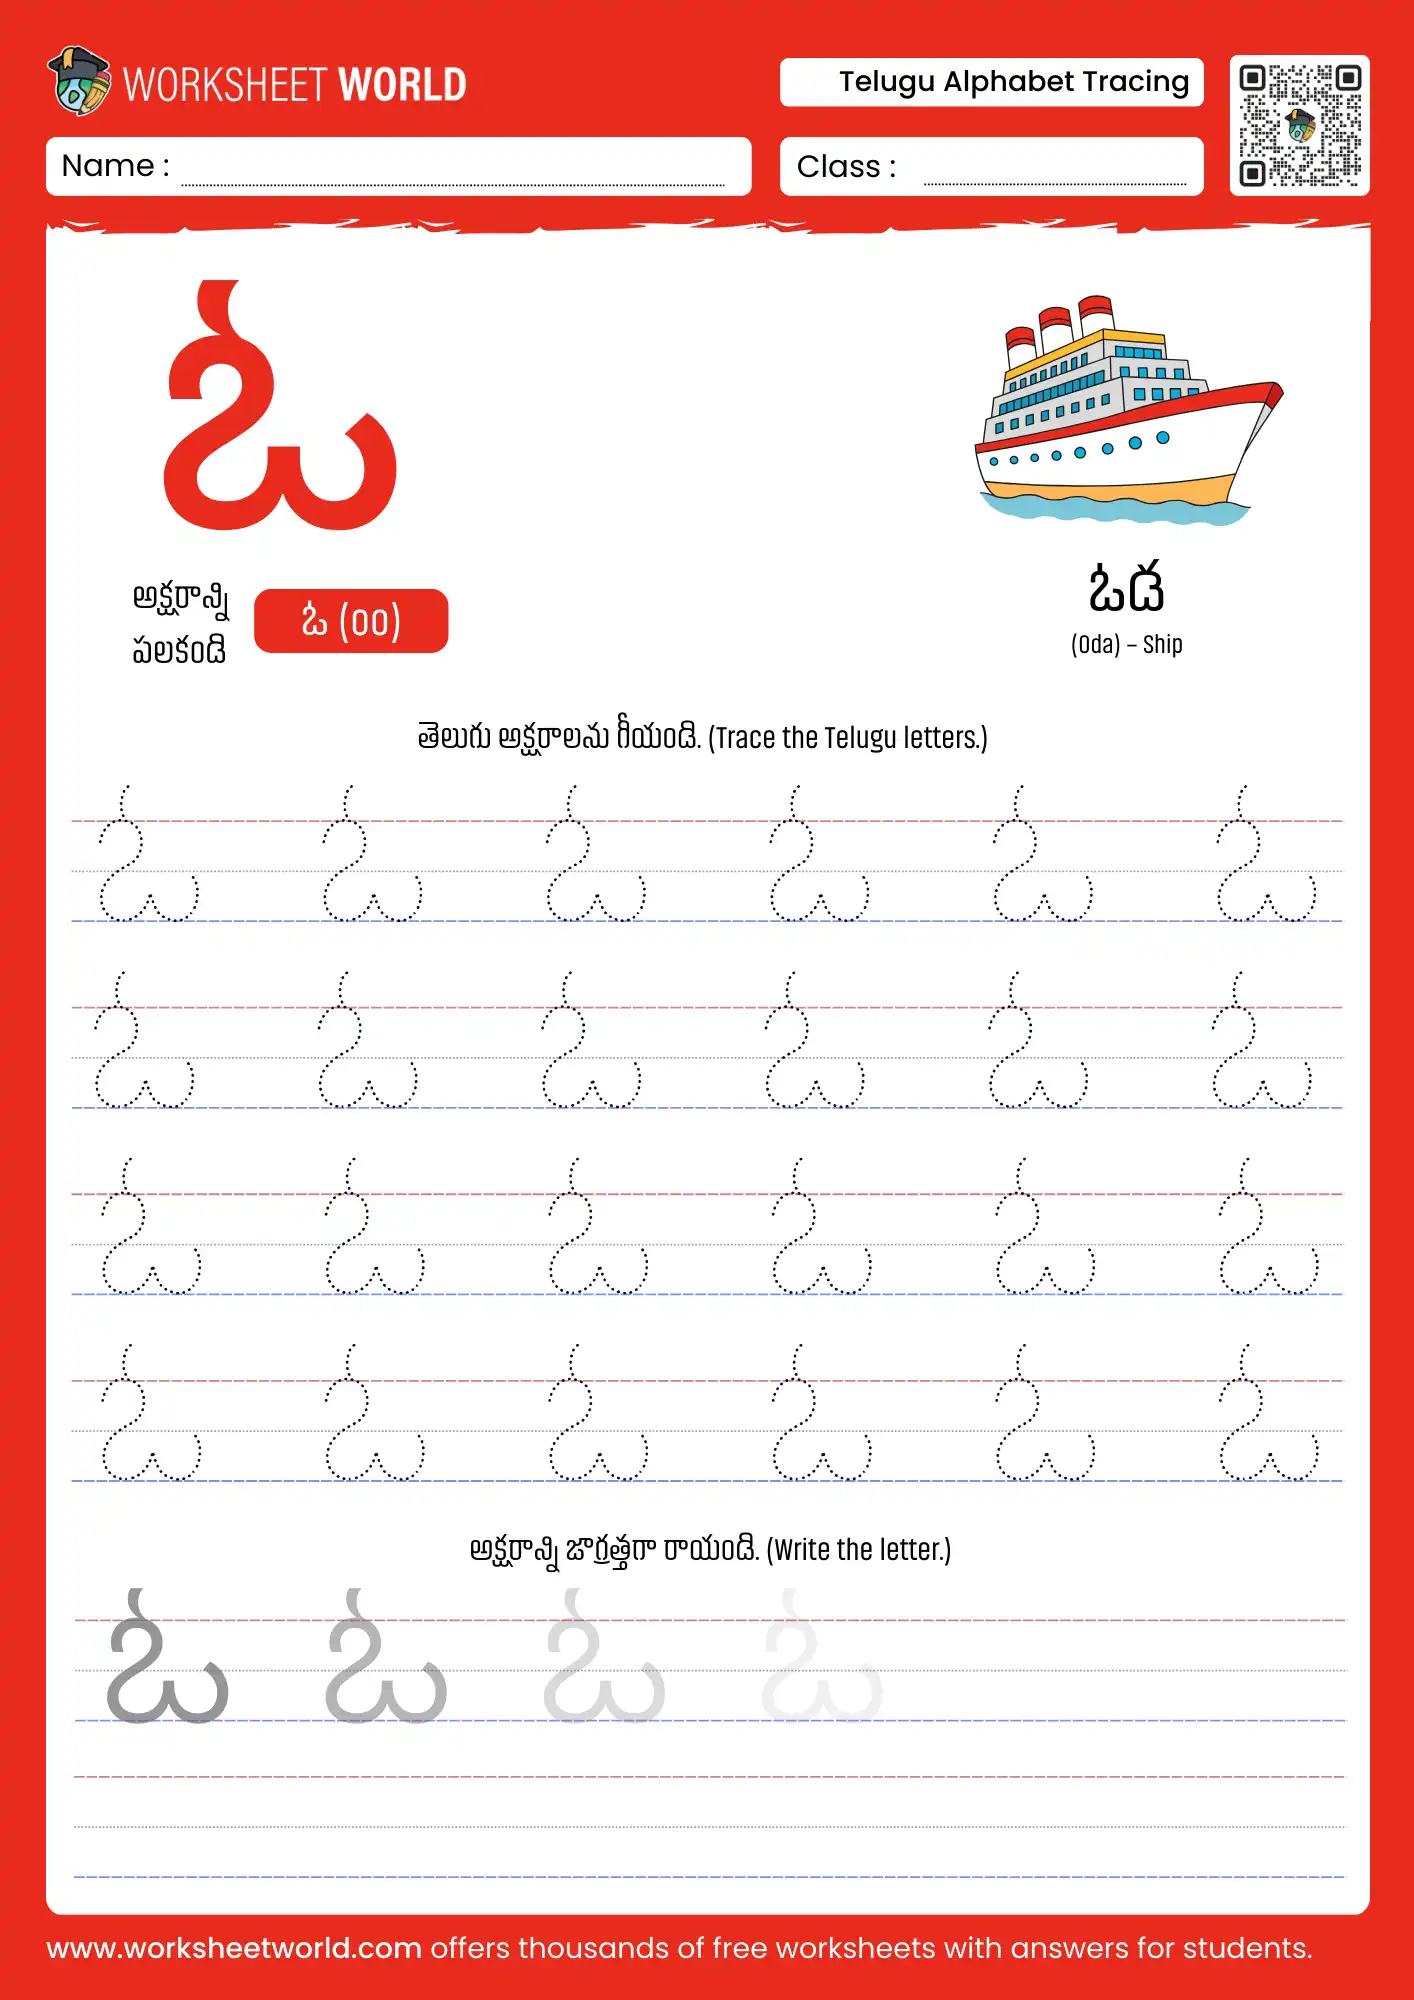 WORKSHEET WORLD
Telugu Alphabet Tracing
Name :
Class :
ఓ
అక్షరాన్ని
పలకండి
ఓ (oo)
ఓడ
(Oda) – Ship
తెలుగు అక్షరాలను గీయండి. (Trace the Telugu letters.)
ఓ ఓ ఓ ఓ ఓ ఓ
ఓ ఓ ఓ ఓ ఓ ఓ
ఓ ఓ ఓ ఓ ఓ ఓ
ఓ ఓ ఓ ఓ ఓ ఓ
అక్షరాన్ని జాగ్రత్తగా రాయండి. (Write the letter.)
ఓ ఓ ఓ ఓ
www.worksheetworld.com offers thousands of free worksheets with answers for students.